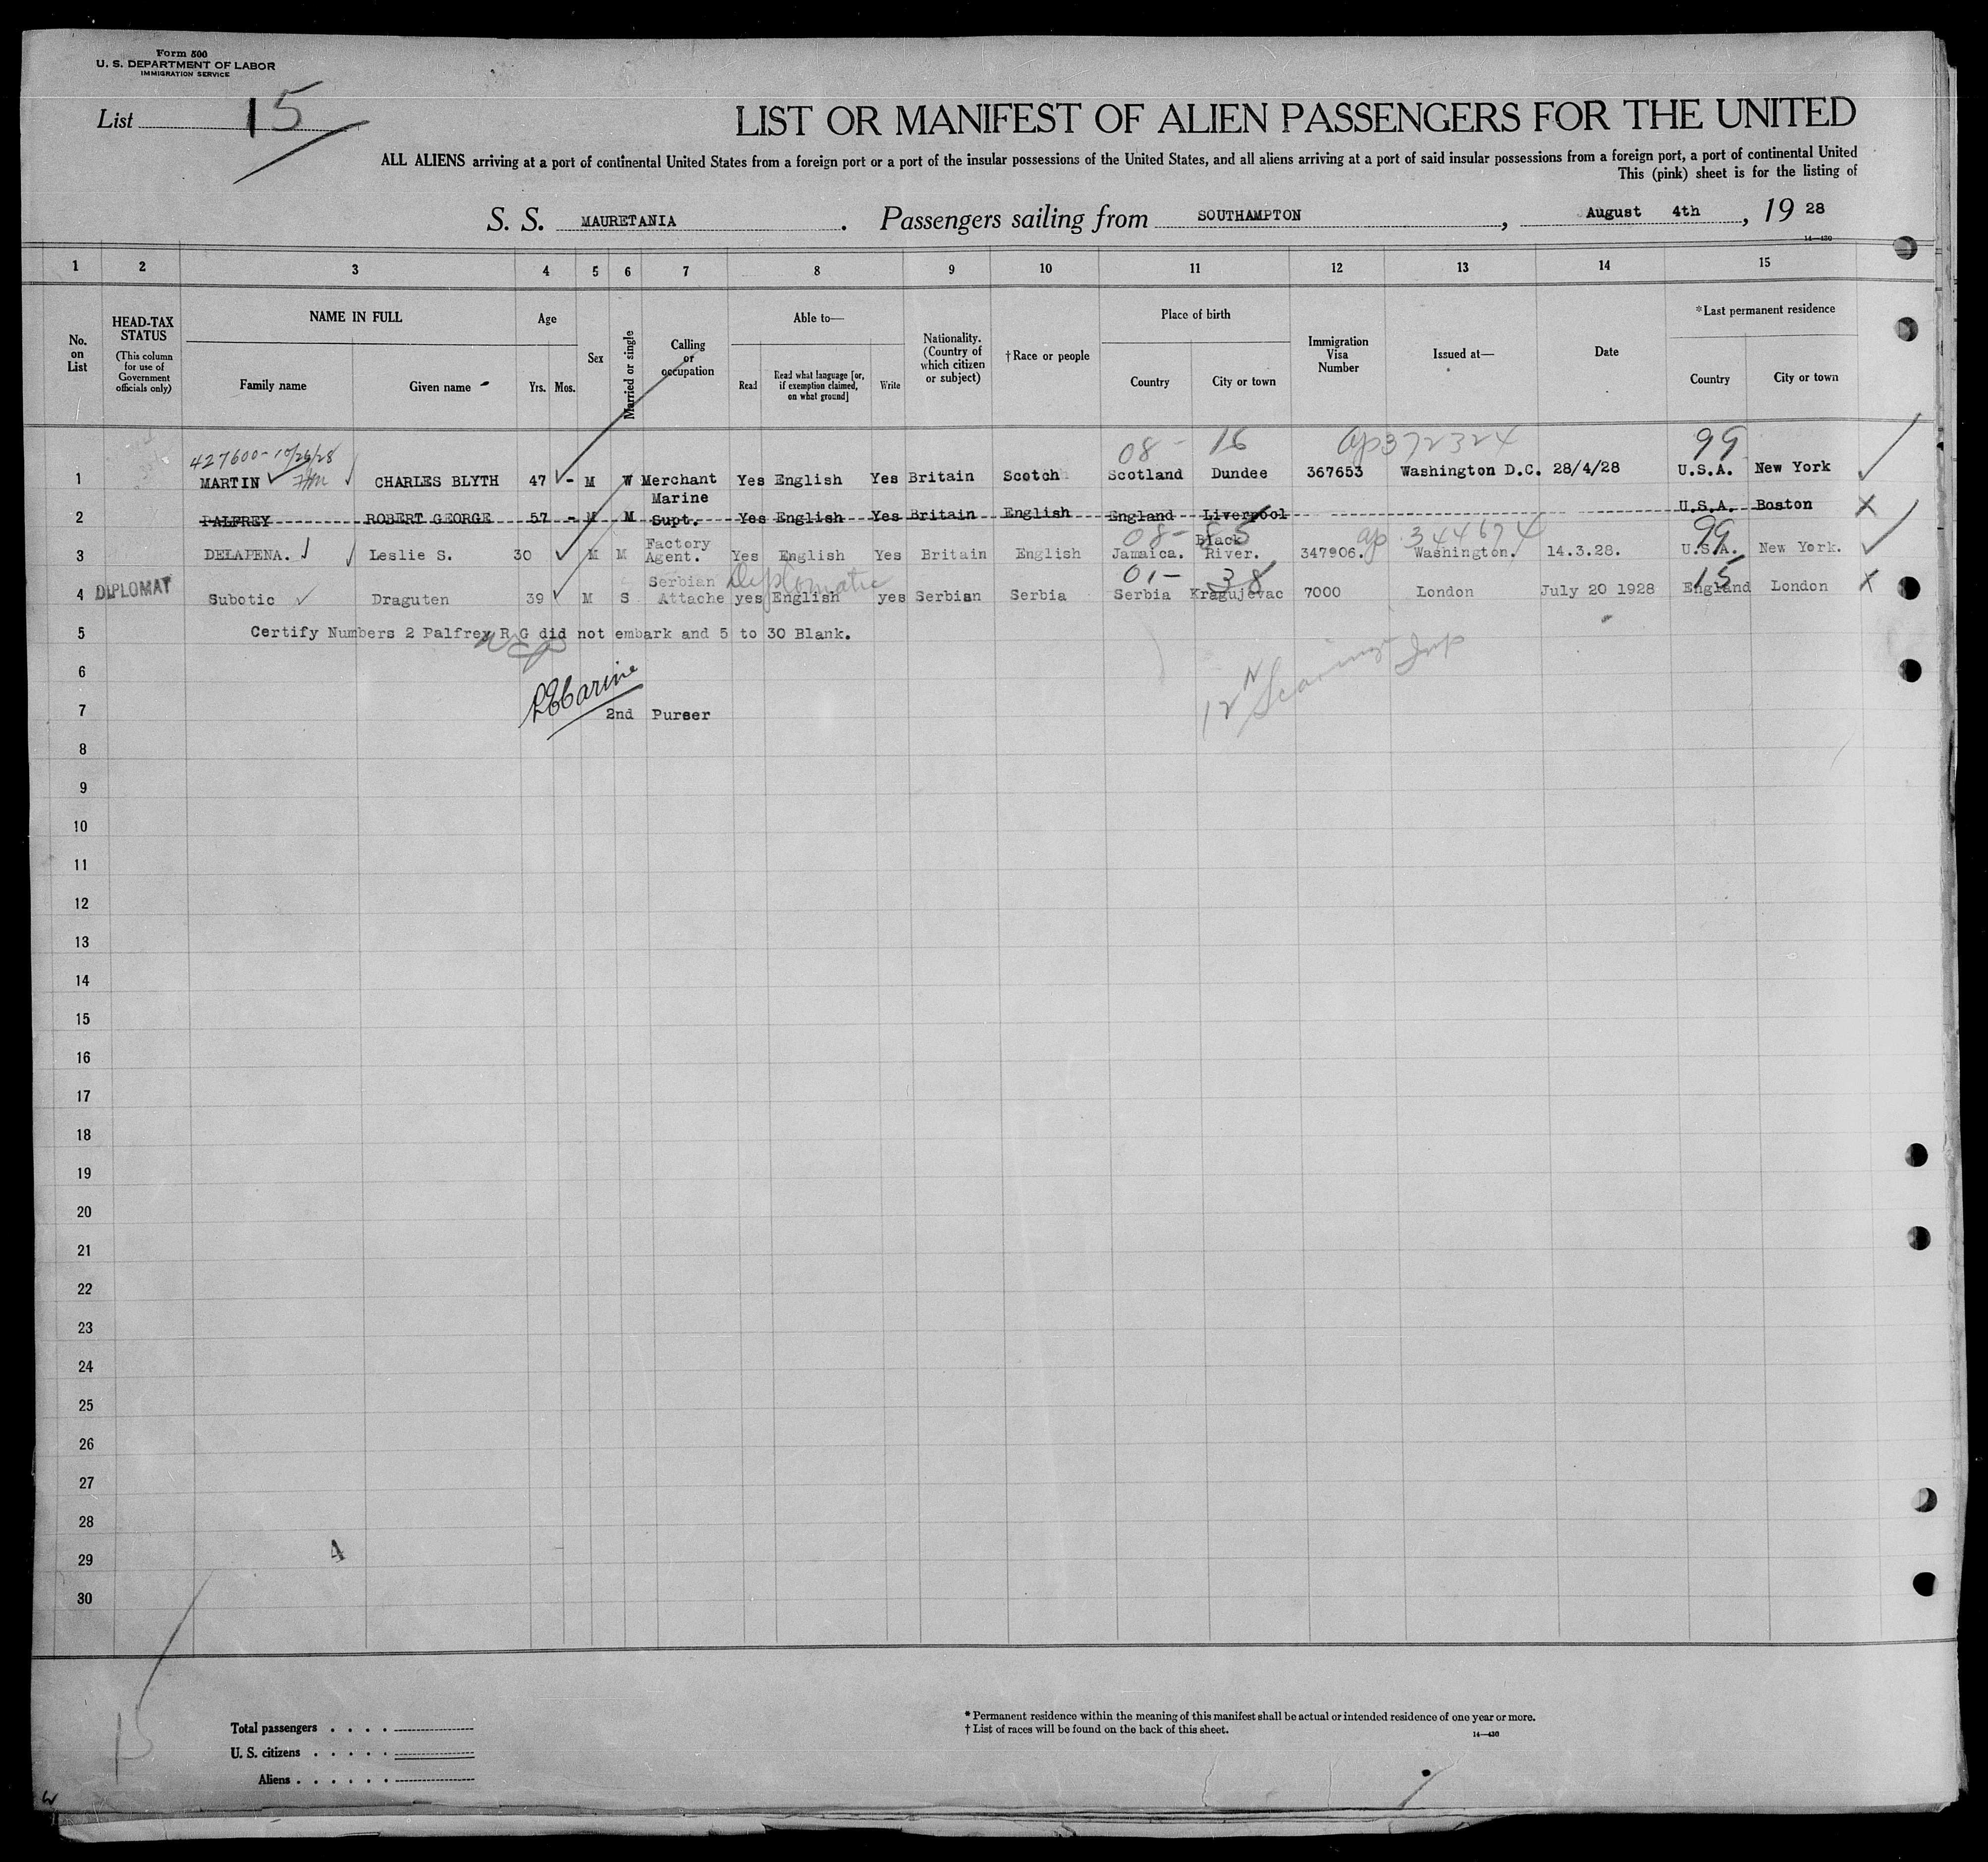 Form 500
U. S. DEPARTMENT OF LABOR
IMMIGRATION SERVICE
List 15
LIST OR MANIFEST OF ALIEN PASSENGERS FOR THE UNITED
ALL ALIENS arriving at a port of continental United States from a foreign port or a port of the insular possessions of the United States, and all aliens arriving at a port of said insular possessions from a foreign port, a port of continental United
This (pink) sheet is for the listing of
S. S. MAURETANIA . Passengers sailing from SOUTHAMPTON , August 4th , 19 28
14—430
1 2 3 4 5 6 7 8 9 10 11 12 13 14 15
No. on List
HEAD-TAX STATUS (This column for use of Government officials only)
NAME IN FULL
Family name Given name
Age
Yrs. Mos.
Sex
Married or single
Calling or occupation
Able to—
Read Read what language [or, if exemption claimed, on what ground] Write
Nationality. (Country of which citizen or subject)
†Race or people
Place of birth
Country City or town
Immigration Visa Number
Issued at—
Date
*Last permanent residence
Country City or town
427600-10/26/28 08 - 16 ap 372324 99
1 MARTIN CHARLES BLYTH 47 - M W Merchant Yes English Yes Britain Scotch Scotland Dundee 367653 Washington D.C. 28/4/28 U.S.A. New York
2 PALFREY ROBERT GEORGE 57 - M M Marine Supt. Yes English Yes Britain English England Liverpool U.S.A. Boston
08- 85 ap 344674 99
3 DELAPENA. Leslie S. 30 M M Factory Agent. Yes English Yes Britain English Jamaica. Black River. 347906. Washington. 14.3.28. U.S.A. New York.
Diplomatic 01- 38 15
4 DIPLOMAT Subotic Draguten 39 M S Serbian Attache yes English yes Serbian Serbia Serbia Kragujevac 7000 London July 20 1928 England London
5 Certify Numbers 2 Palfrey R G did not embark and 5 to 30 Blank.
6
7 2nd Purser
8
9
10
11
12
13
14
15
16
17
18
19
20
21
22
23
24
25
26
27
28
29
30
4
15
Total passengers . . . .
U. S. citizens . . . . .
Aliens . . . . . .
* Permanent residence within the meaning of this manifest shall be actual or intended residence of one year or more.
† List of races will be found on the back of this sheet.
14—430